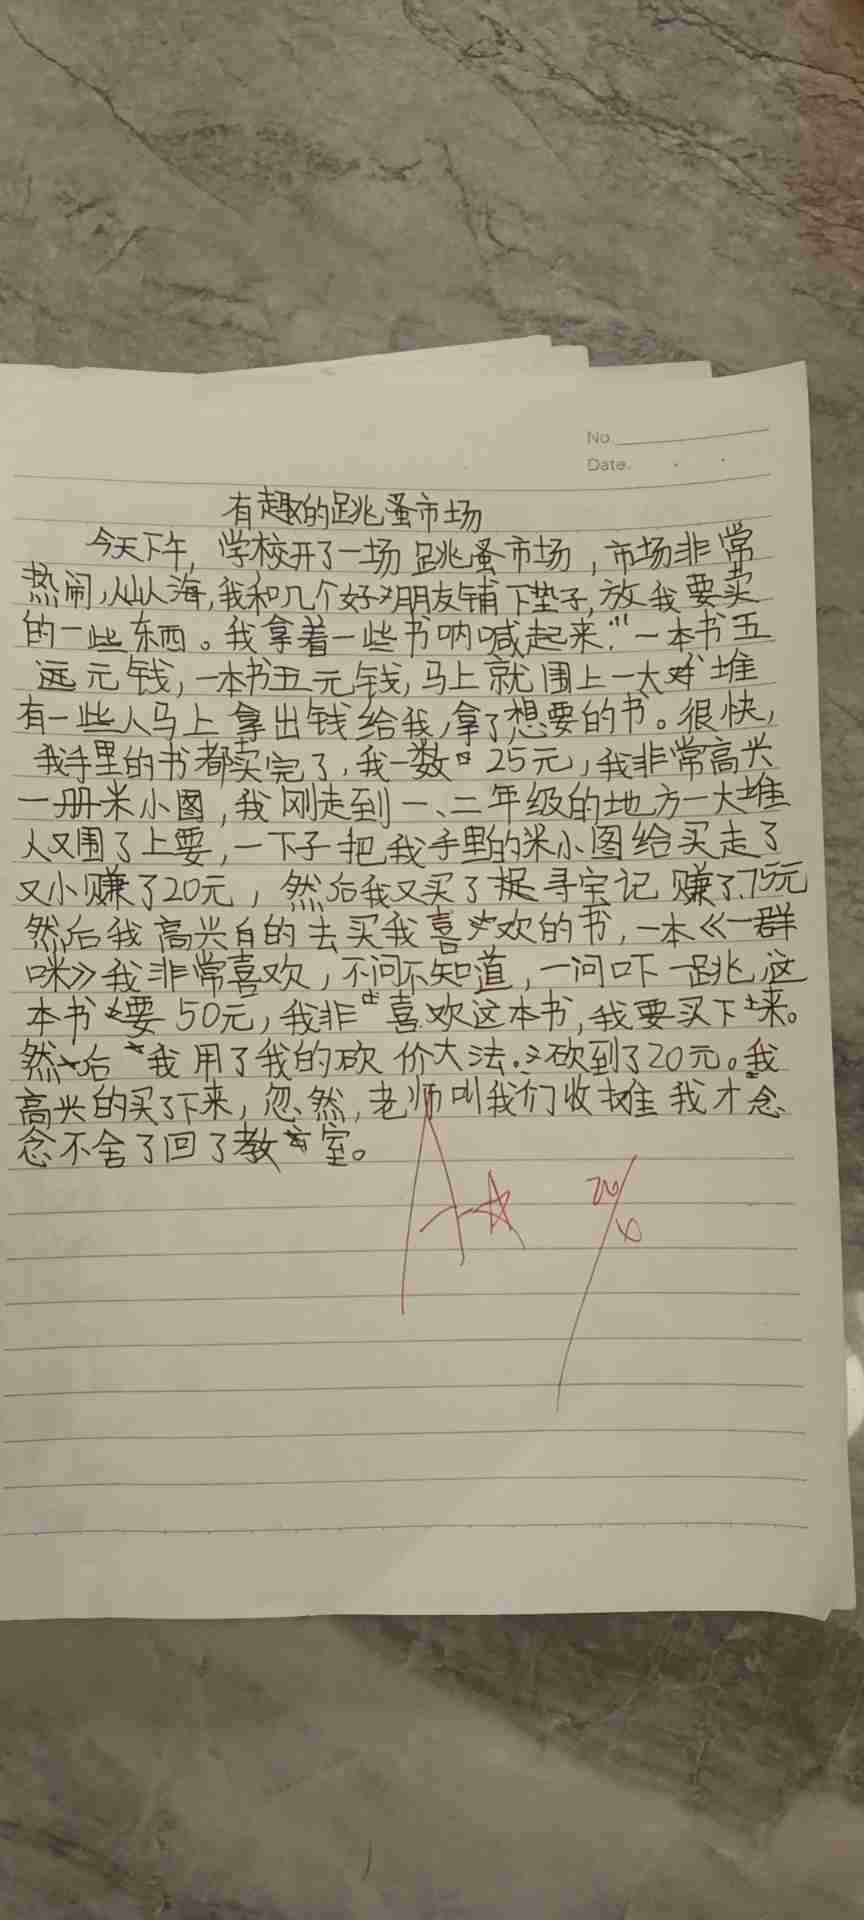 No.
Date.
有趣的跳蚤市场
今天下午,学校开了一场跳蚤市场,市场非常
热闹,人山人海,我和几个好朋友铺下垫子,放我要买
的一些东西。我拿着一些书呐喊起来:"一本书五
元钱,一本书五元钱,马上就围上一大堆
有一些人马上拿出钱给我,拿了想要的书。很快,
我手里的书都卖完了,我一数 25元,我非常高兴
一册米小图,我刚走到一、二年级的地方一大堆
人又围了上要,一下子把我手里的米小图给买走了
又小赚了20元,然后我又买了 寻宝记 赚了75元
然后我高兴的去买我喜欢的书,一本《一群
咪》我非常喜欢,不问不知道,一问吓一跳,这
本书要50元,我非喜欢这本书,我要买下来。
然后我用了我的砍价大法,砍到了20元。我
高兴的买了下来,忽然,老师叫我们收摊我才念
念不舍了回了教室。
A+☆